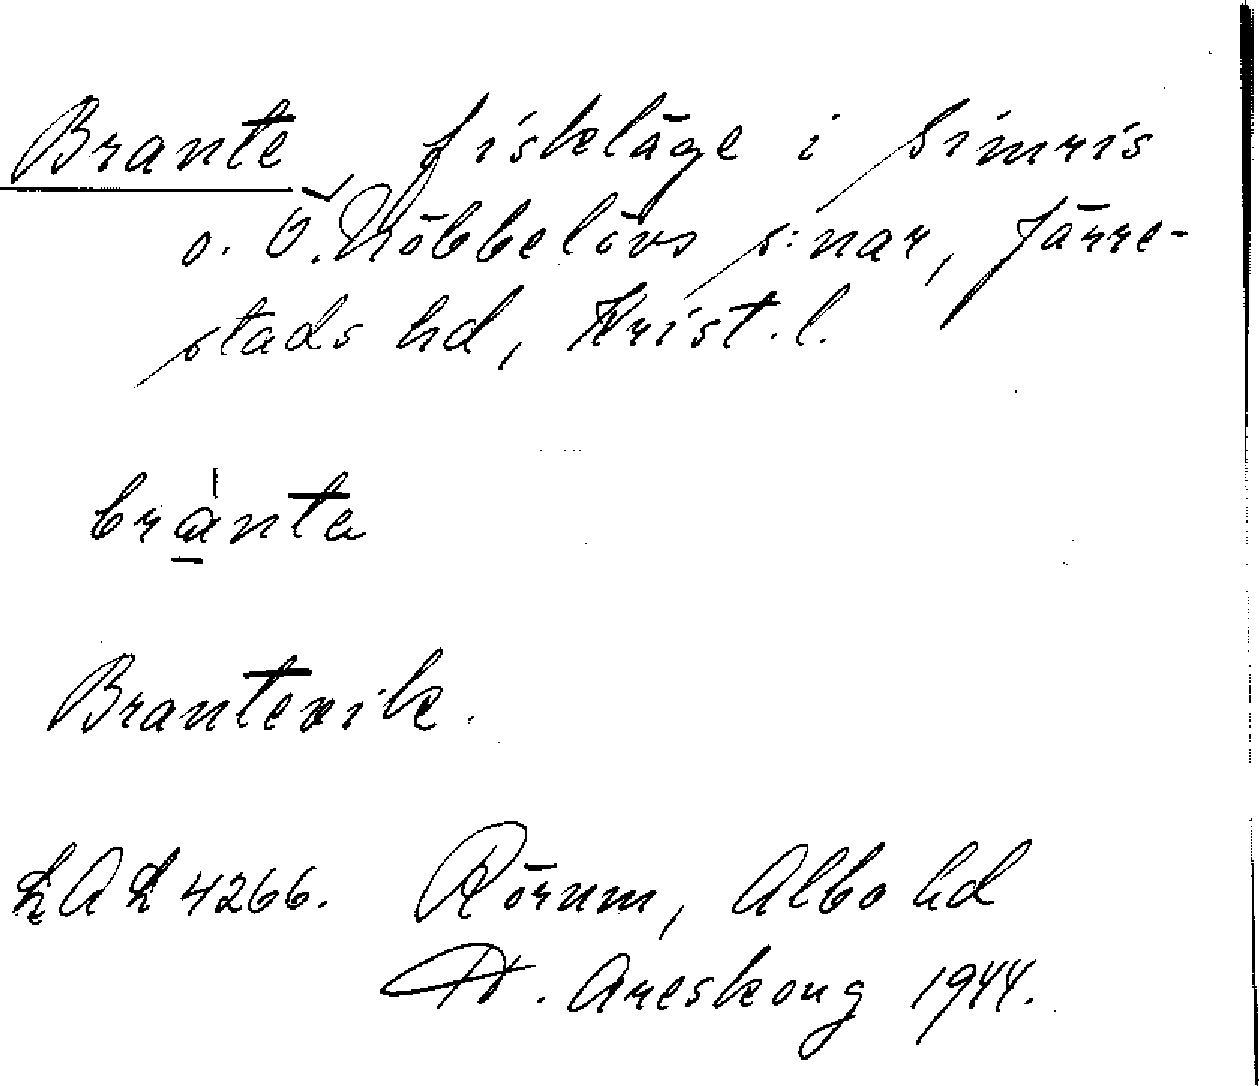 Brante, fiskeläge i Simris
o. Ö. Nöbbelövs s:nar, Järre-
stads hd, Krist. l.
bra̱̍nta
Brantevik.
LAL 4266. Rörum, Albo hd
Areskoug 1944.